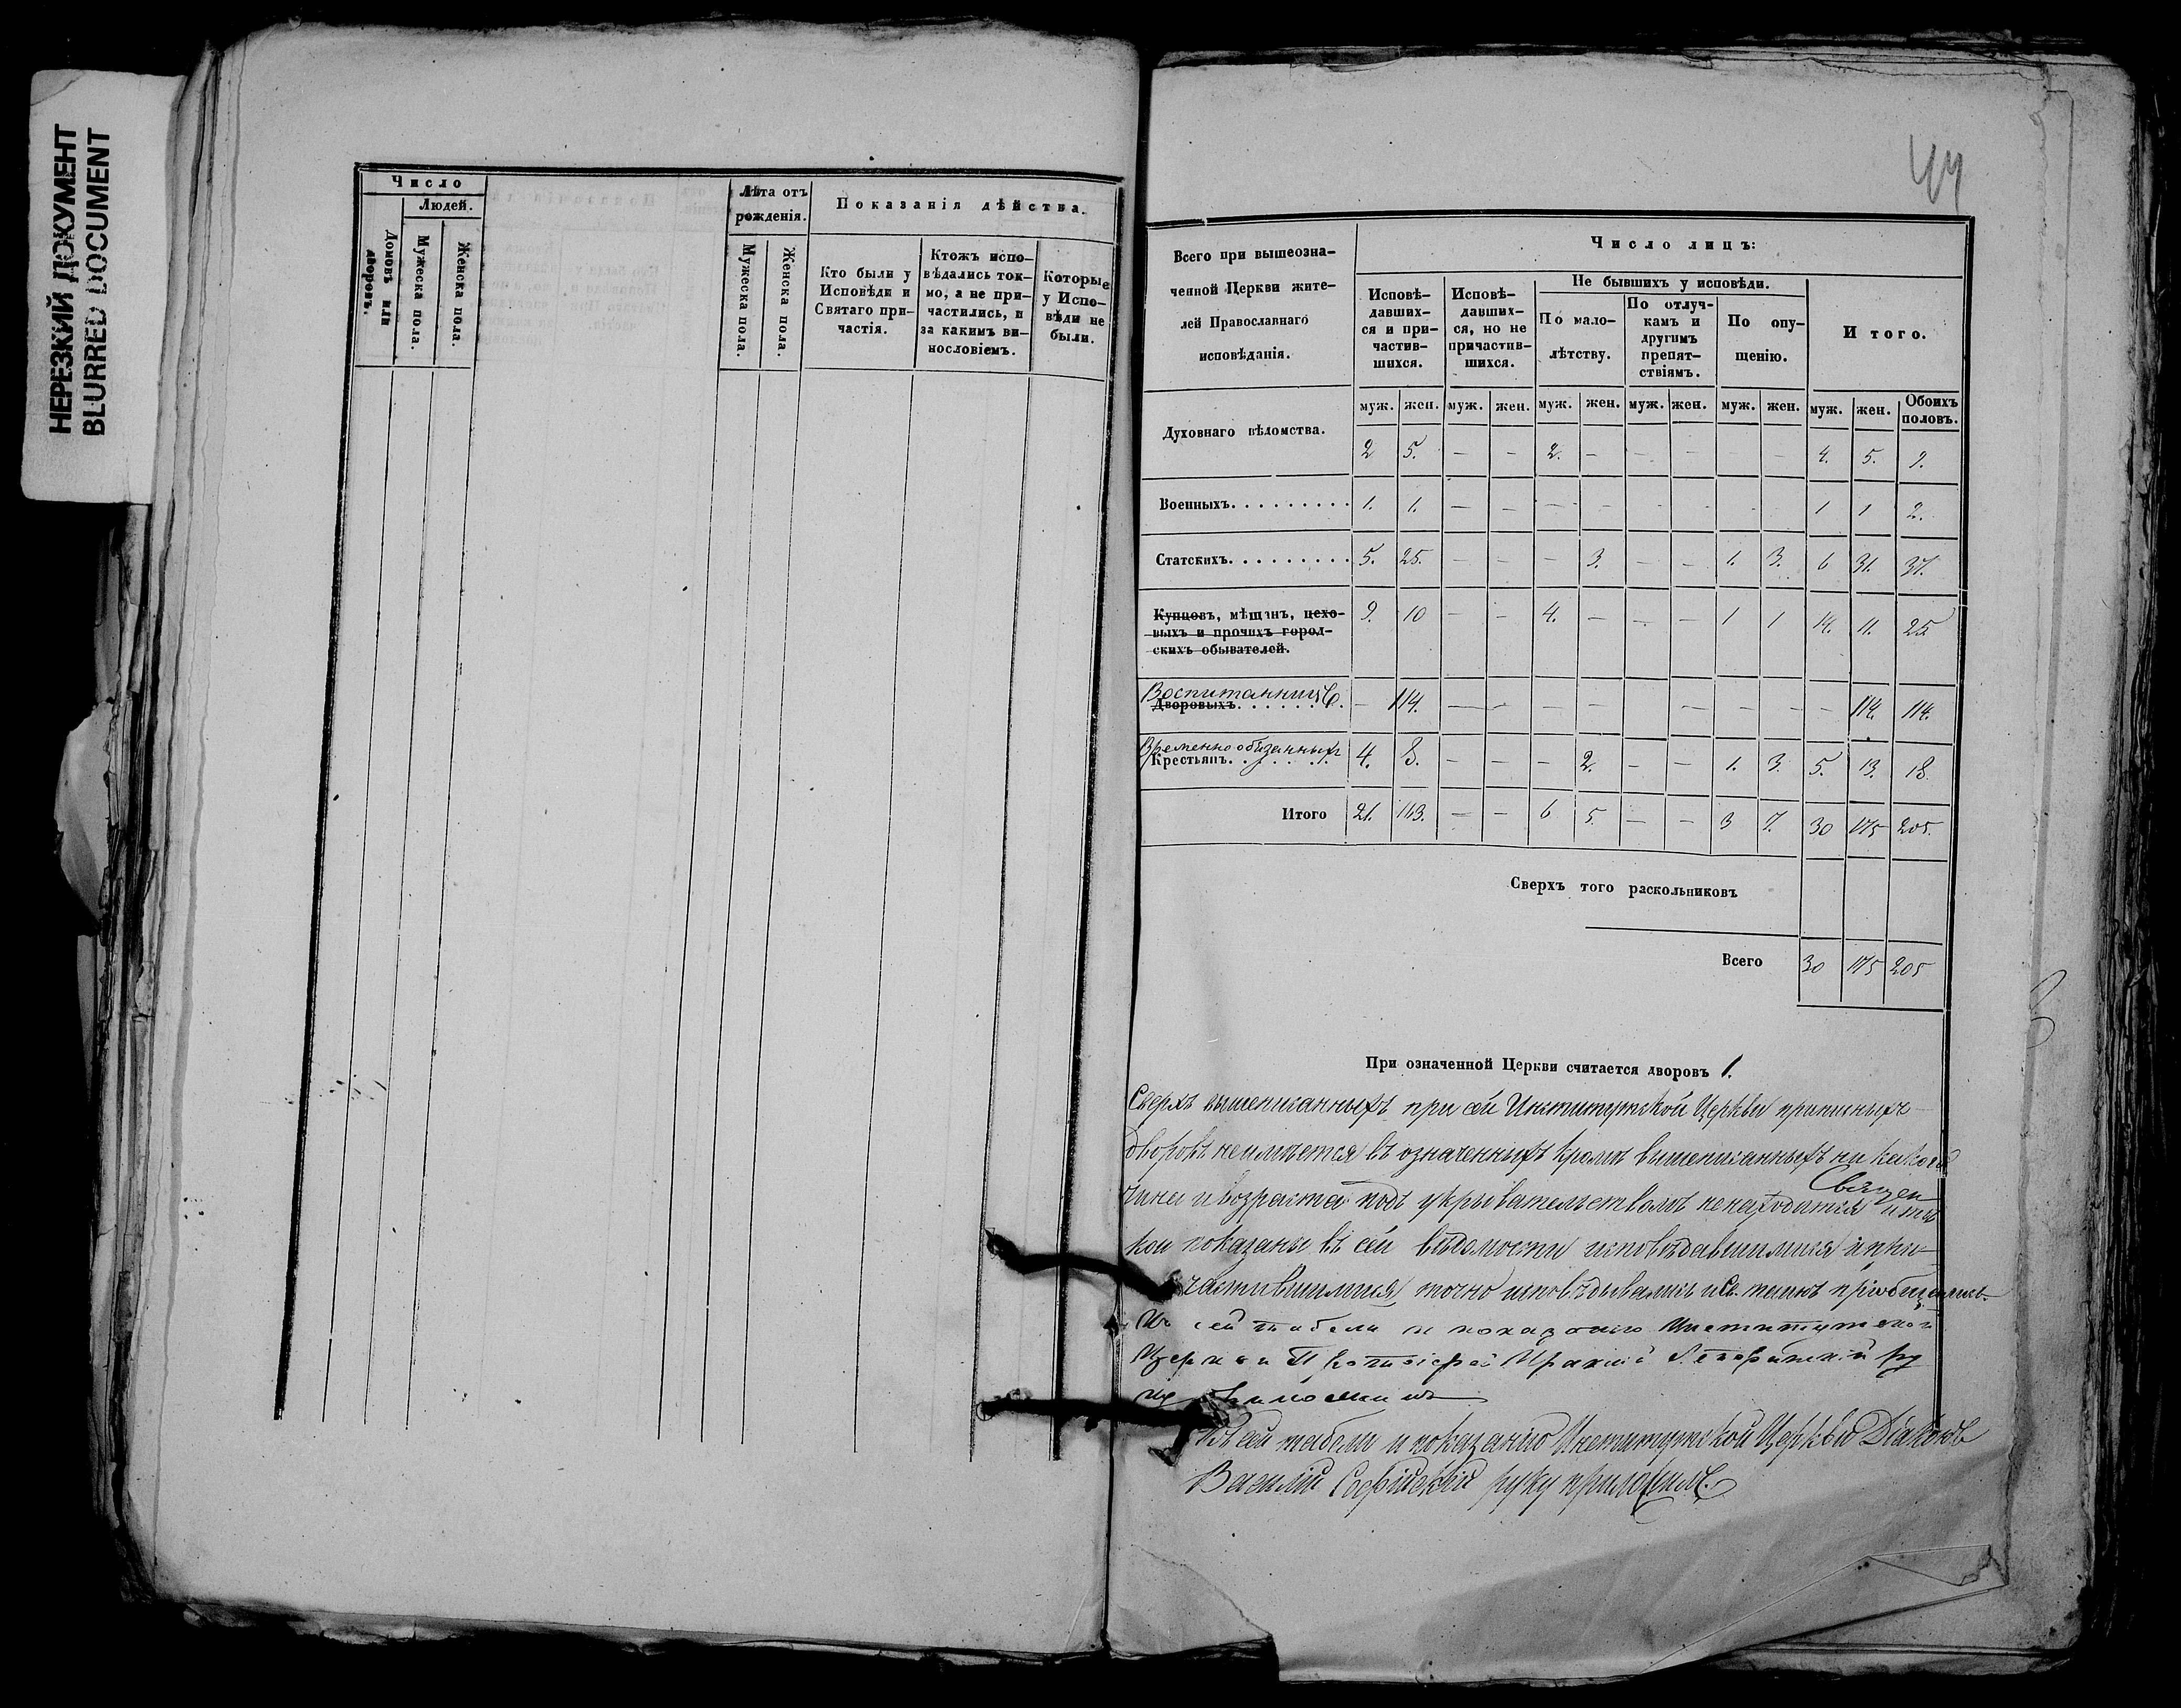 НЕРЕЗКИЙ ДОКУМЕНТ
BLURRED DOCUMENT
Число
Людей.
Домовъ или дворовъ.
Мужеска пола.
Женска пола.
Лѣта отъ рожденія.
Мужеска пола.
Женска пола.
Показанія дѣйства.
Кто были у Исповѣди и Святаго причастія.
Ктожъ исповѣдались токмо, а не причастились, и за какимъ винословіемъ.
Которые у Исповѣди не были.
44
Всего при вышеозна-
ченной Церкви жите-
лей Православнаго
исповѣданія.
Число лицъ:
Исповѣ-
давших-
ся и при-
частив-
шихся.
Исповѣ-
давших-
ся, но не
причастив-
шихся.
Не бывшихъ у исповѣди.
По мало-
лѣтству.
По отлуч-
камъ и
другимъ
препят-
ствіямъ.
По опу-
щенію.
Итого.
муж. жен. муж. жен. муж. жен. муж. жен. муж. жен. муж. жен. Обоихъ половъ.
Духовнаго вѣдомства. 2 5. — — 2. — — — — — 4. 5. 9.
Военныхъ. 1. 1. — — — — — — — — 1 1 2.
Статскихъ. 5. 25. — — — 3. — — 1. 3. 6 31. 37.
Купцовъ, мѣщанъ, цехо-
выхъ и прочихъ город-
скихъ обывателей. 9. 10 — — 4. — — — 1 1 14. 11. 25
Воспитанницъ.
Дворовыхъ. — 114. — — — — — — — — 114. 114.
Временно обязанныхъ
Крестьянъ. 4. 8. — — — 2. — — 1. 3. 5. 13. 18
Итого 21. 163. — — 6 5. — — 3 7. 30 175 205.
Сверхъ того раскольниковъ
Всего 30 175 205
При означенной Церкви считается дворовъ 1.
Сверхъ вышеписанныхъ при сей Институтской Церкви приписныхъ
дворовъ неимѣется въ означенныхъ кромѣ вышеписанныхъ ни какого
чина и возраста подъ укрывательствомъ ненаходится
кои показаны въ сей вѣдомости исповѣдавшимися и при-
частившимися точно исповѣдывались и Св. таинъ пріобщались
Къ сей табели и показанію Институтской
Церкви Протоіерей
Къ сей табели и показанію Институтской Церкви Діаконъ
Василій Софійскій руку приложилъ.